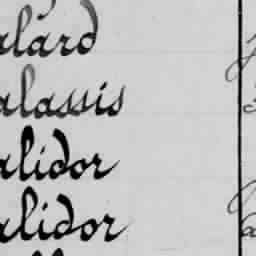 alard
alassis
alidor
alidor